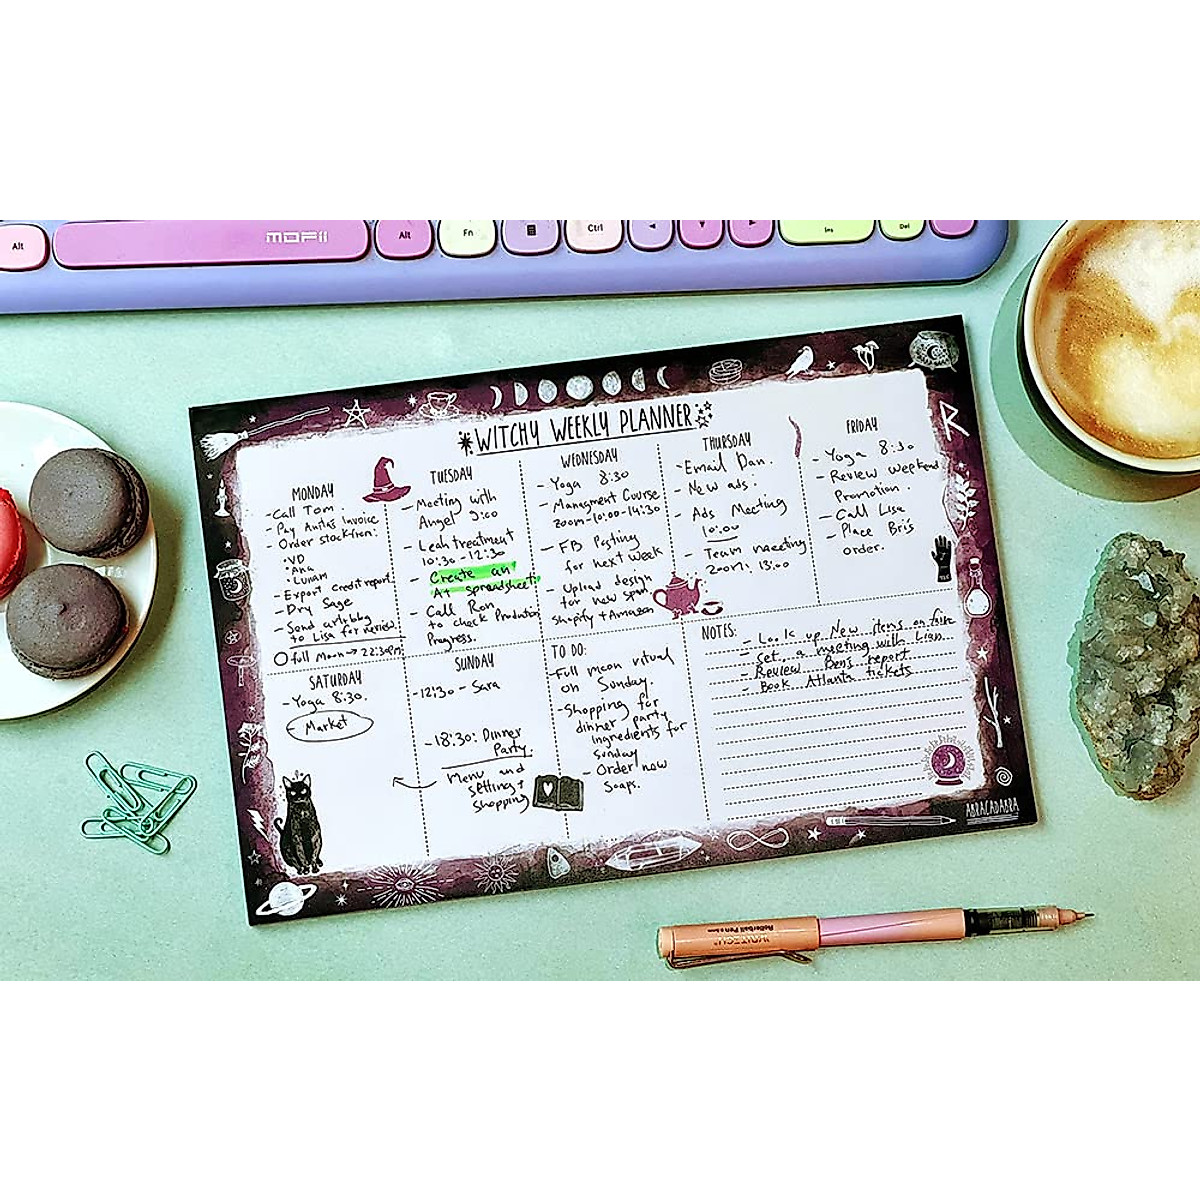 Alt
MOFII
Alt
Fn
Ctrl
Ins
Del
WITCHY WEEKLY PLANNER
MONDAY
- Call Tom.
- Pay Anita's Invoice
- Order stock from:
• VD
• Ana
• Lunam
- Export credit report
- Dry Sage
- Send art
to Lisa for review.
full moon → 22:30PM
TUESDAY
- Meeting with
Angel 9:00
- Leah treatment
10:30 - 12:30
- Create an
A+ spreadsheet.
- Call Ron
to check Production
Progress.
WEDNESDAY
- Yoga 8:30
- Managment Course
zoom - 10:00 - 14:30
- FB Posting
for next week
- Upload design
for new
Shopify + Amazon
THURSDAY
- Email Dan.
- New ads.
- Ads Meeting
10:00
- Team meeting
zoom: 13:00
FRIDAY
- Yoga 8:30
- Review weekend
Promotion.
- Call Lisa
- Place Bri's
order.
SATURDAY
- Yoga 8:30.
- Market
SUNDAY
- 12:30 - Sara
- 18:30: Dinner
Party.
Menu and
setting +
shopping
TO DO:
- Full moon ritual
on Sunday.
- Shopping for
dinner party
ingredients for
sunday
- Order new
Soaps.
NOTES:
- Look up New items on
- set a meeting with Lisa
- Review Ben's report
- Book Atlanta tickets
ABRACADABRA
Rollerball Pen